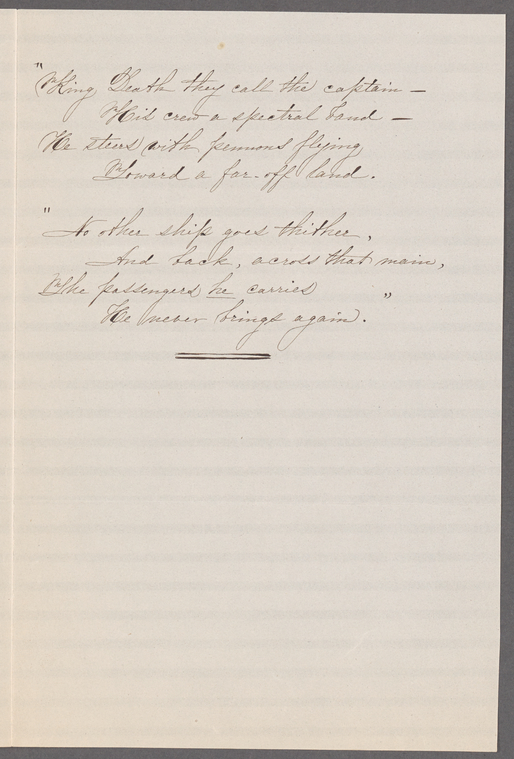 "King Death they call the captain —
His crew a spectral band —
He steers with pennons flying
Toward a far-off land.
"No other ship goes thither,
And back, across that main,
The passengers he carries
He never brings again."